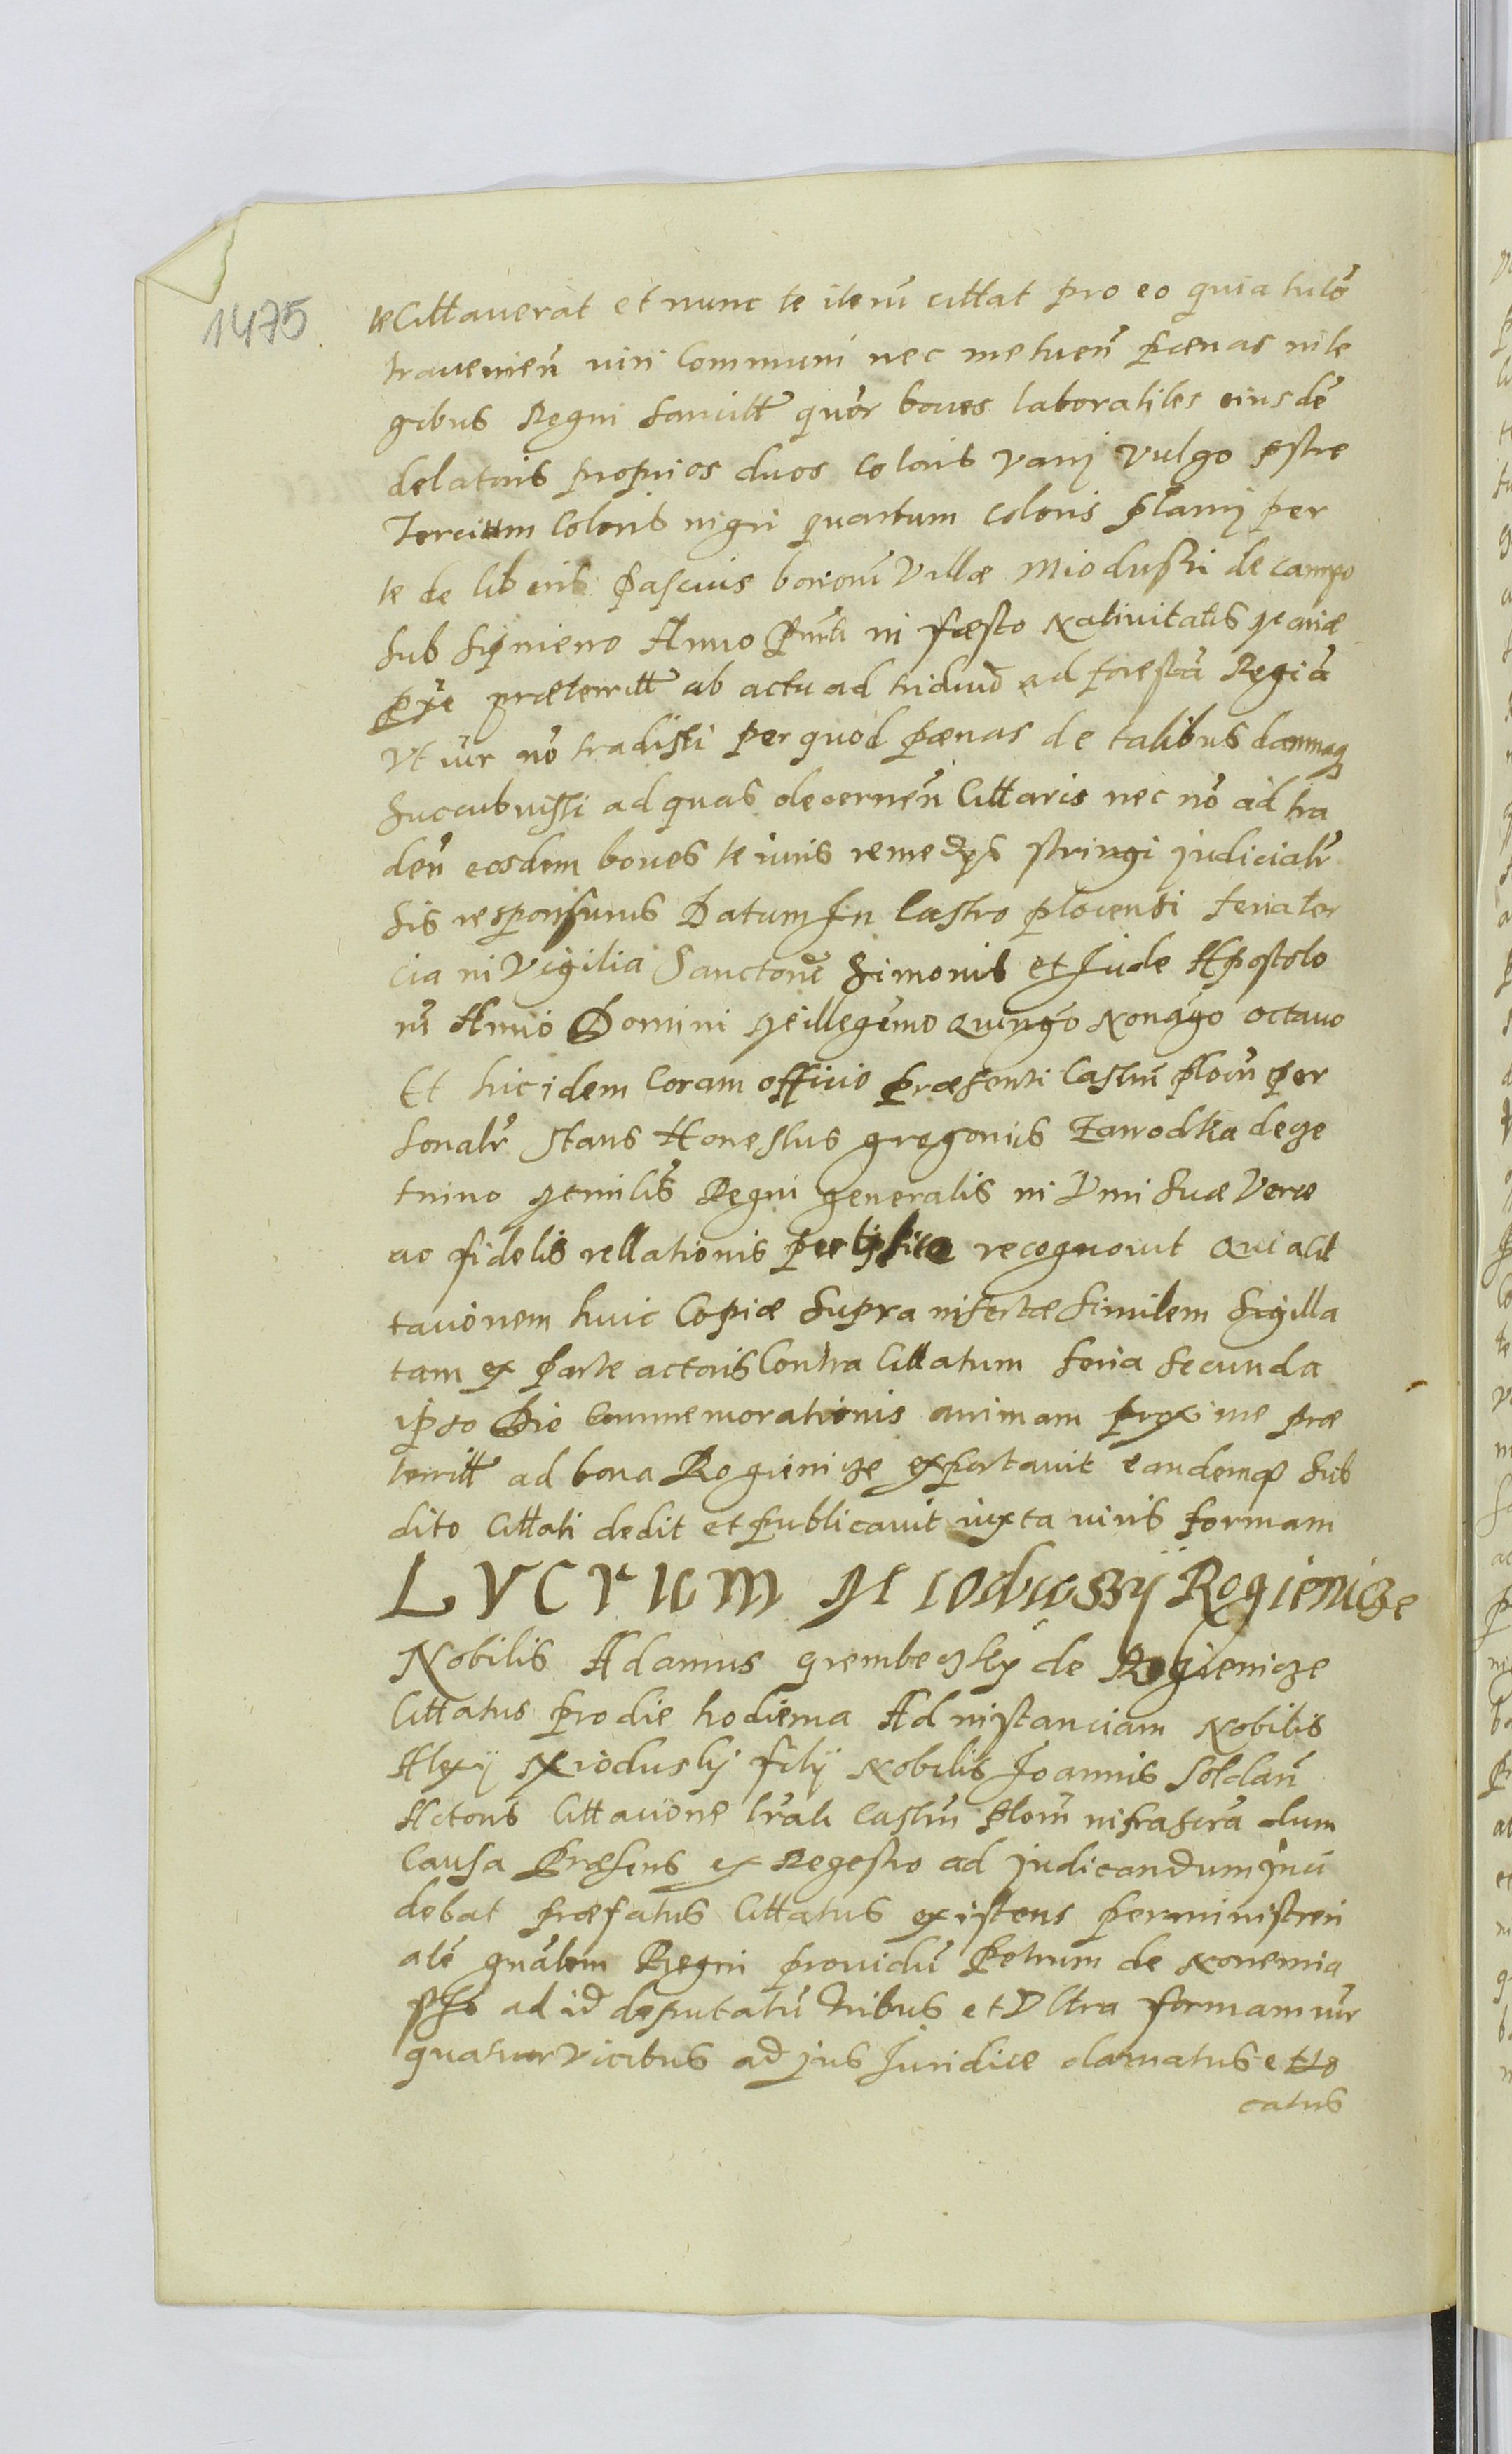 1475
te Cittauerat et nunc te iterũ cittat pro eo quia tu cõ
trauenien̄ iuri Communi nec metuen̄ pœnas in le
gibus Regni sancitt quõr boues laborabiles eiusdẽ
delatoris proprios duos coloris varij vulgo pstre
Tercium Coloris nigri quartum coloris plawij per
te de liberis pascuis bonorũ Villæ Miodusski de campo
sub signieno Anno Prñti in fæsto Natiuitatis Mariæ
pxe præteritt ab actu ad triduũ ad forestã Regiã
vt iur nõ tradisti per quod pœnas de talibus damnaq
succubuisti ad quas decernen̄ Cittaris nec nõ ad tra
den̄ eosdem boues te iuris remedijs stringi judicialr
sis responsurus Datum In Castro plocensi feria ter
cia in Vigilia Sanctorũ Simonis et Jude Apostolo
rũ Anno Domini Millegẽmo Quingo Nonago octauo
Et hic idem Coram officio præsenti Castrñ ploceñ per
sonalr stans Honestus gregorius Zawodka de
trino Mẽnilis Regni generalis in vim suæ Veræ
ac fidelis rellationis recognouit Quia cit
tacionem huic Copiæ supra insertæ similem sigilla
tam ex parte actoris Contra Cittatum feria secunda
ipso Die Commemorationis animam proxime præ
teritt ad bona Rogienicze exportauit eandemq sub
dito Cittati dedit et publicauit iuxta iuris formam
LVCrum Mioduszÿ Rogienicze
Nobilis Adamus grembeczky de Rogienicze
Cittatus pro die hodierna Ad instanciam Nobilis
Alexÿ Miodusky filÿ Nobilis Joannis soldañ
Actoris Cittacione lrãli Castrñ ploceñ infrascrã dum
Causa Præsens ex Regestro ad judicandum jncũ
debat præfatus Cittatus existens per ministeri
alẽ gnãlem Regni prouidũ Petrum de Nonemia
sto ad id deputatũ tribus et Vltra formam iur
quatuor vicibus ad jus Juridice clamatus et vo
catus